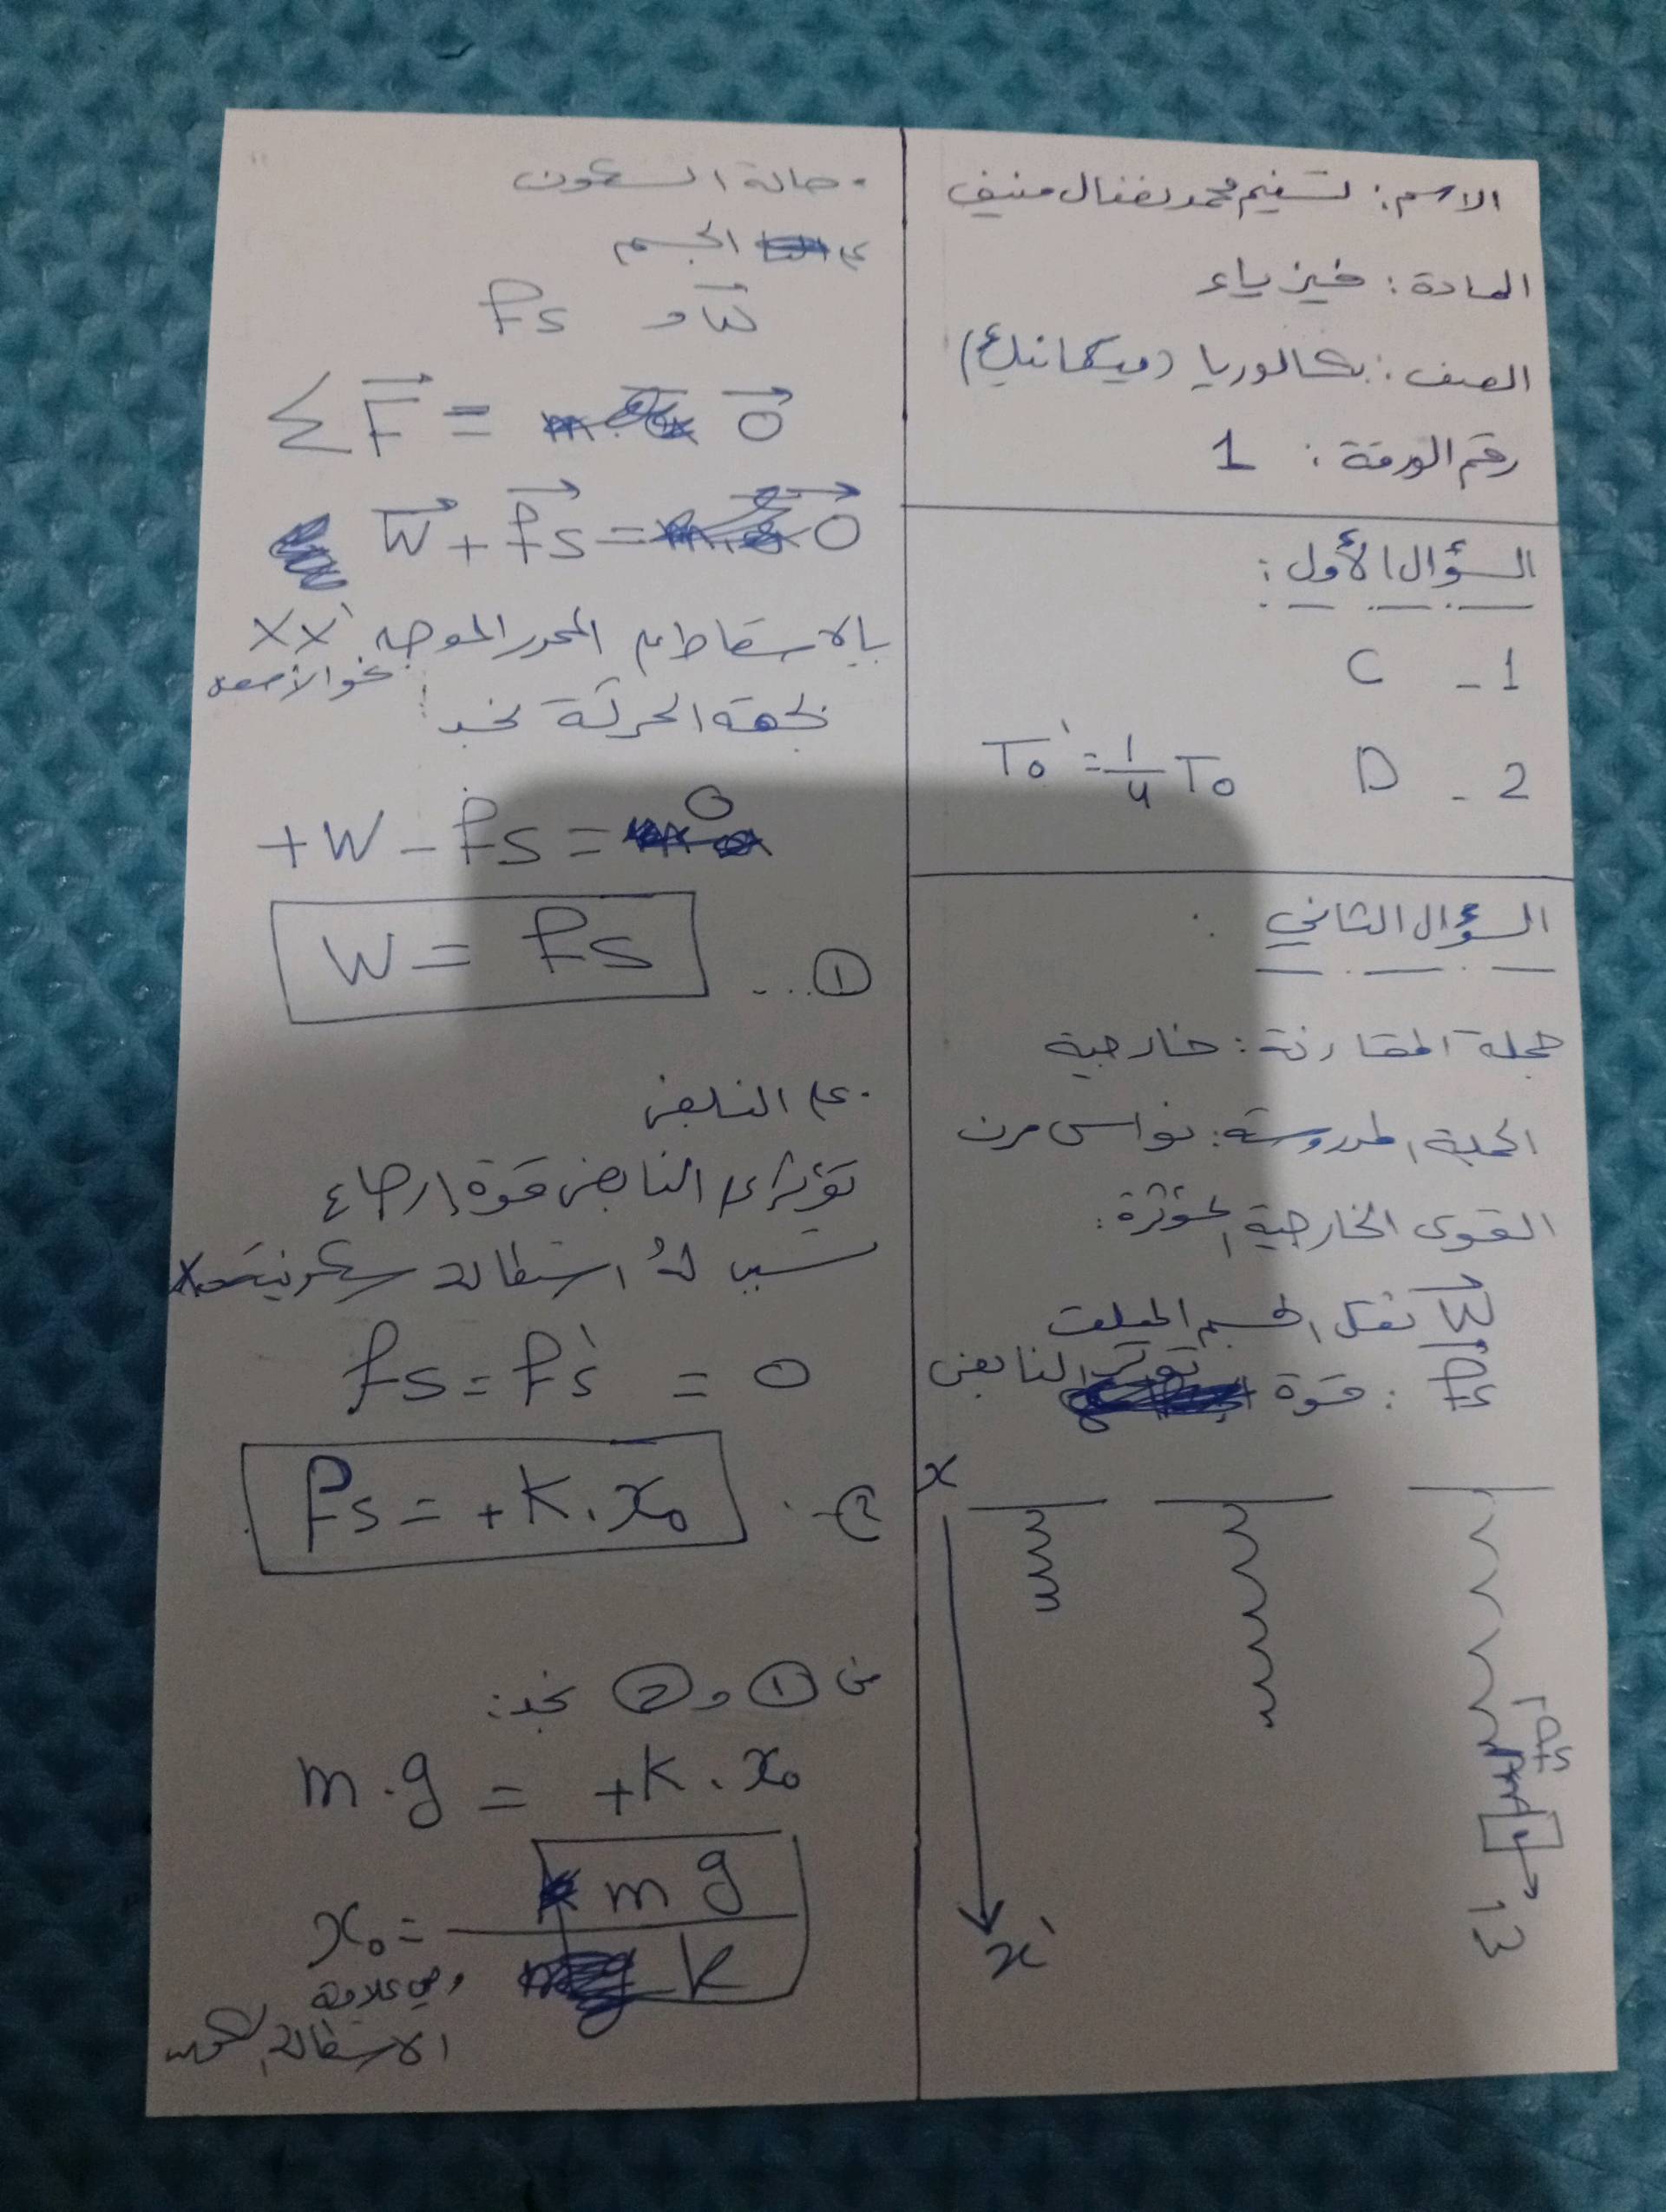 الاسم: تسنيم محمد نضال منيف
المادة: فيزياء
الصف: بكالوريا (ميكانيك)
رقم الورقة: 1
السؤال الأول:
1 - C
2 - D T₀' = 1/4 T₀
السؤال الثاني:
جملة المقارنة: خارجية
الجملة المدروسة: نواس مرن
القوى الخارجية المؤثرة:
W⃗ ثقل الجسم المعلق
Fs: قوة توتر النابض
x
x'
Fs
W
. حالة السكون
على الجسم
W⃗ و Fs
∑F⃗ = 0⃗
W⃗ + Fs⃗ = 0⃗
بالاسقاط على المحور الموجه xx'
نحو الأسفل
بجهة الحركة نجد:
+W - Fs = 0
W = Fs ... ①
. على النابض
تؤثر على النابض قوة إرجاع
تسبب له استطالة سكونية x
Fs = Fs' = 0
Fs = +K . x₀ .. ②
من ① و ② نجد:
m . g = +K . x₀
x₀ = mg / k
وهي علاقة
الاستطالة السكونية